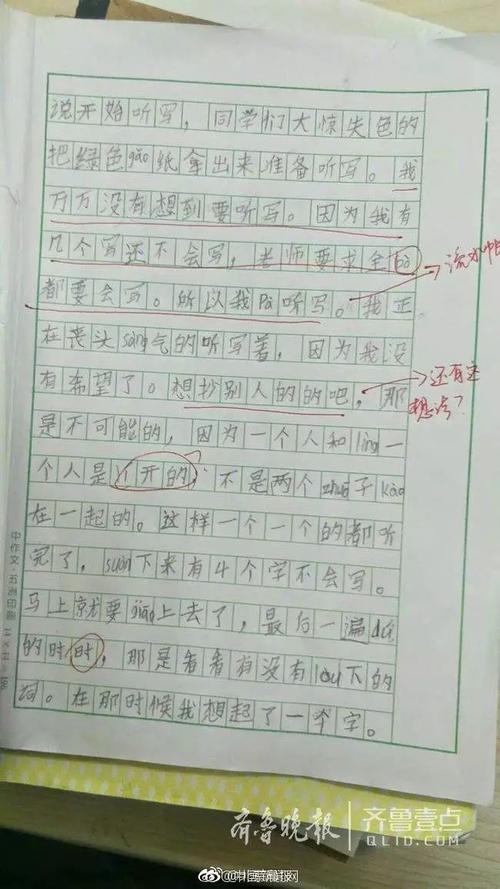 说开始听写，同学们大惊失色的
把绿色gǎo纸拿出来准备听写。我
万万没有想到要听写。因为我有
几个写还不会写，老师要求全bù
都要会写。所以我pà听写。我正
在丧头sàng气的听写着，因为我没
有希望了。想抄别人的的吧，那
还有这
想法？
是不可能的，因为一个人和lìng一
个人是个开的，不是两个zhuō子kào
在一起的。这样一个一个的都听
完了，suàn下来有4个字不会写。
马上就要jiāo上去了，最后一遍dú
的时时，那是看看有没有lòu下的
词。在那时候我想起了一个字。
齐鲁晚报
齐鲁壹点
QLID.COM